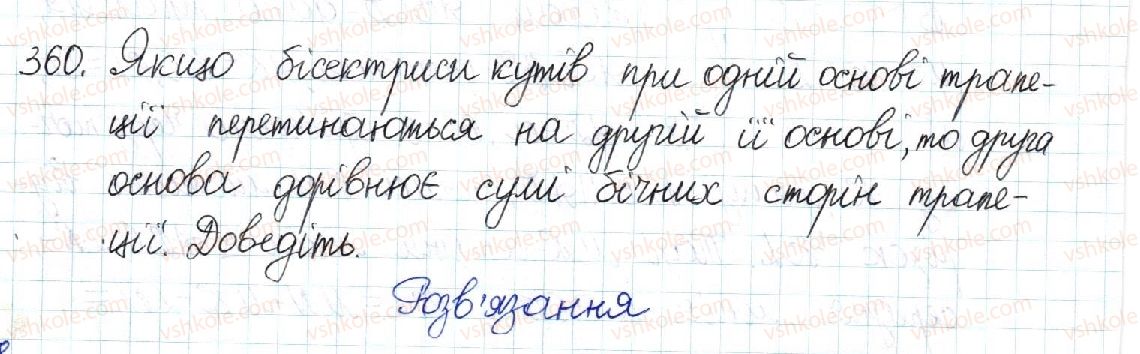 360. Якщо бісектриси кутів при одній основі трапе-
ції перетинаються на другій її основі, то друга
основа дорівнює сумі бічних сторін трапе-
ції. Доведіть.
Розв'язання